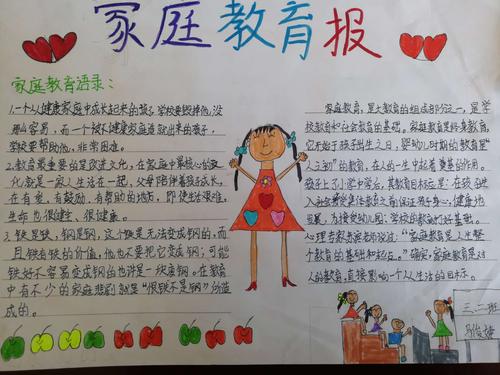 家庭教育报
家庭教育语录：
1.一个从健康家庭中成长起来的孩子，学校要毁掉他，没
那么容易，而一个被不健康家庭造就出来的孩子，
学校要帮助他，非常困难。
2.教育最重要的是改进文化，在家庭中最核心的文
化就是一家人生活在一起，父母陪伴着孩子成长，
在有爱，有鼓励，有帮助的地方，即使生活艰难，
生命也很健壮、很健康。
3.铁是铁，钢是钢，这个铁是无法变成钢的，而
且铁有铁的价值，他也不要把它变成钢；可能
铁好不容易变成钢的也许是一块废钢。在教育
中有不少的家庭悲剧就是“恨铁不是钢”而造
成的。
家庭教育，是大教育的组成部分之一，是学
校教育和社会教育的基础。家庭教育是终身教育，
它开始于孩子出生之日，婴幼儿时期的教育是“
人之初”的教育，在人的一生中起着奠基的作用。
孩子上了小学中学后，其教育目标应是：在孩子进
健康地
发展，为接受幼儿园、学校的教育打好基础。
心理专家 老师说过：“家庭教育是人生整
个教育的基础和起点。”确实，家庭教育是对
人的教育，直接影响一个人生活的目标。
三.二班